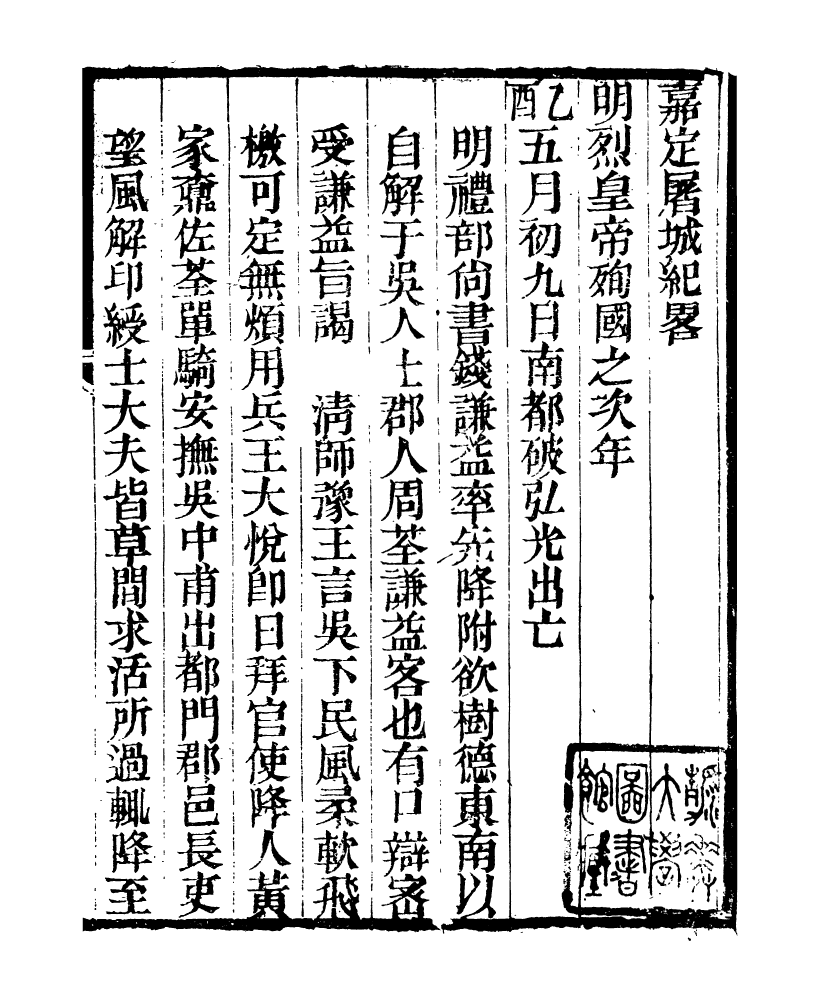 嘉定屠城紀畧
明烈皇帝殉國之次年
乙酉五月初九日南都破弘光出亡
明禮部尙書錢謙益率先降附欲樹德東南以
自解于吳人士郡人周荃謙益客也有口辯密
受謙益旨謁　淸師豫王言吳下民風柔軟飛
檄可定無煩用兵王大悅卽日拜官使降人黃
家鼒佐荃單騎安撫吳中甫出都門郡邑長吏
望風解印綬士大夫皆草間求活所過輒降至
大學
圖書
館